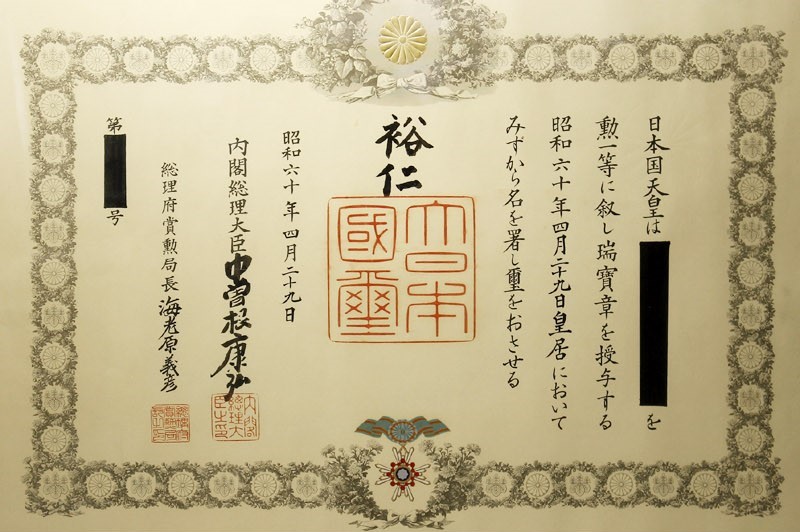 日本国天皇は を
勲一等に叙し瑞寳章を授与する
昭和六十年四月二十九日皇居において
みずから名を署し璽をおさせる
裕仁
大日本
國璽
昭和六十年四月二十九日
内閣総理大臣中曽根康弘
内閣
総理大
臣之印
総理府賞勲局長海老原義彦
第 号